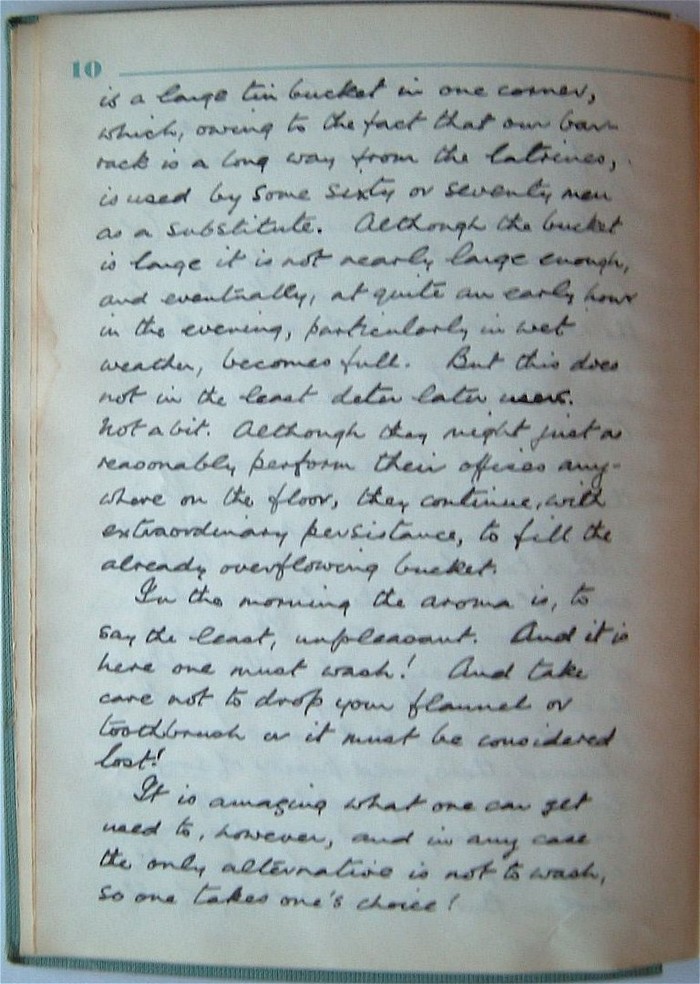 10
is a large tin bucket in one corner,
which, owing to the fact that our bar-
rack is a long way from the latrines,
is used by some sixty or seventy men
as a substitute. Although the bucket
is large it is not nearly large enough,
and eventually, at quite an early hour
in the evening, particularly in wet
weather, becomes full. But this does
not in the least deter later users.
Not a bit. Although they might just as
reasonably perform their offices any-
where on the floor, they continue, with
extraordinary persistance, to fill the
already overflowing bucket.
In the morning the aroma is, to
say the least, unpleasant. And it is
here one must wash! And take
care not to drop your flannel or
toothbrush or it must be considered
lost!
It is amazing what one can get
used to, however, and in any case
the only alternative is not to wash,
so one takes one's choice!